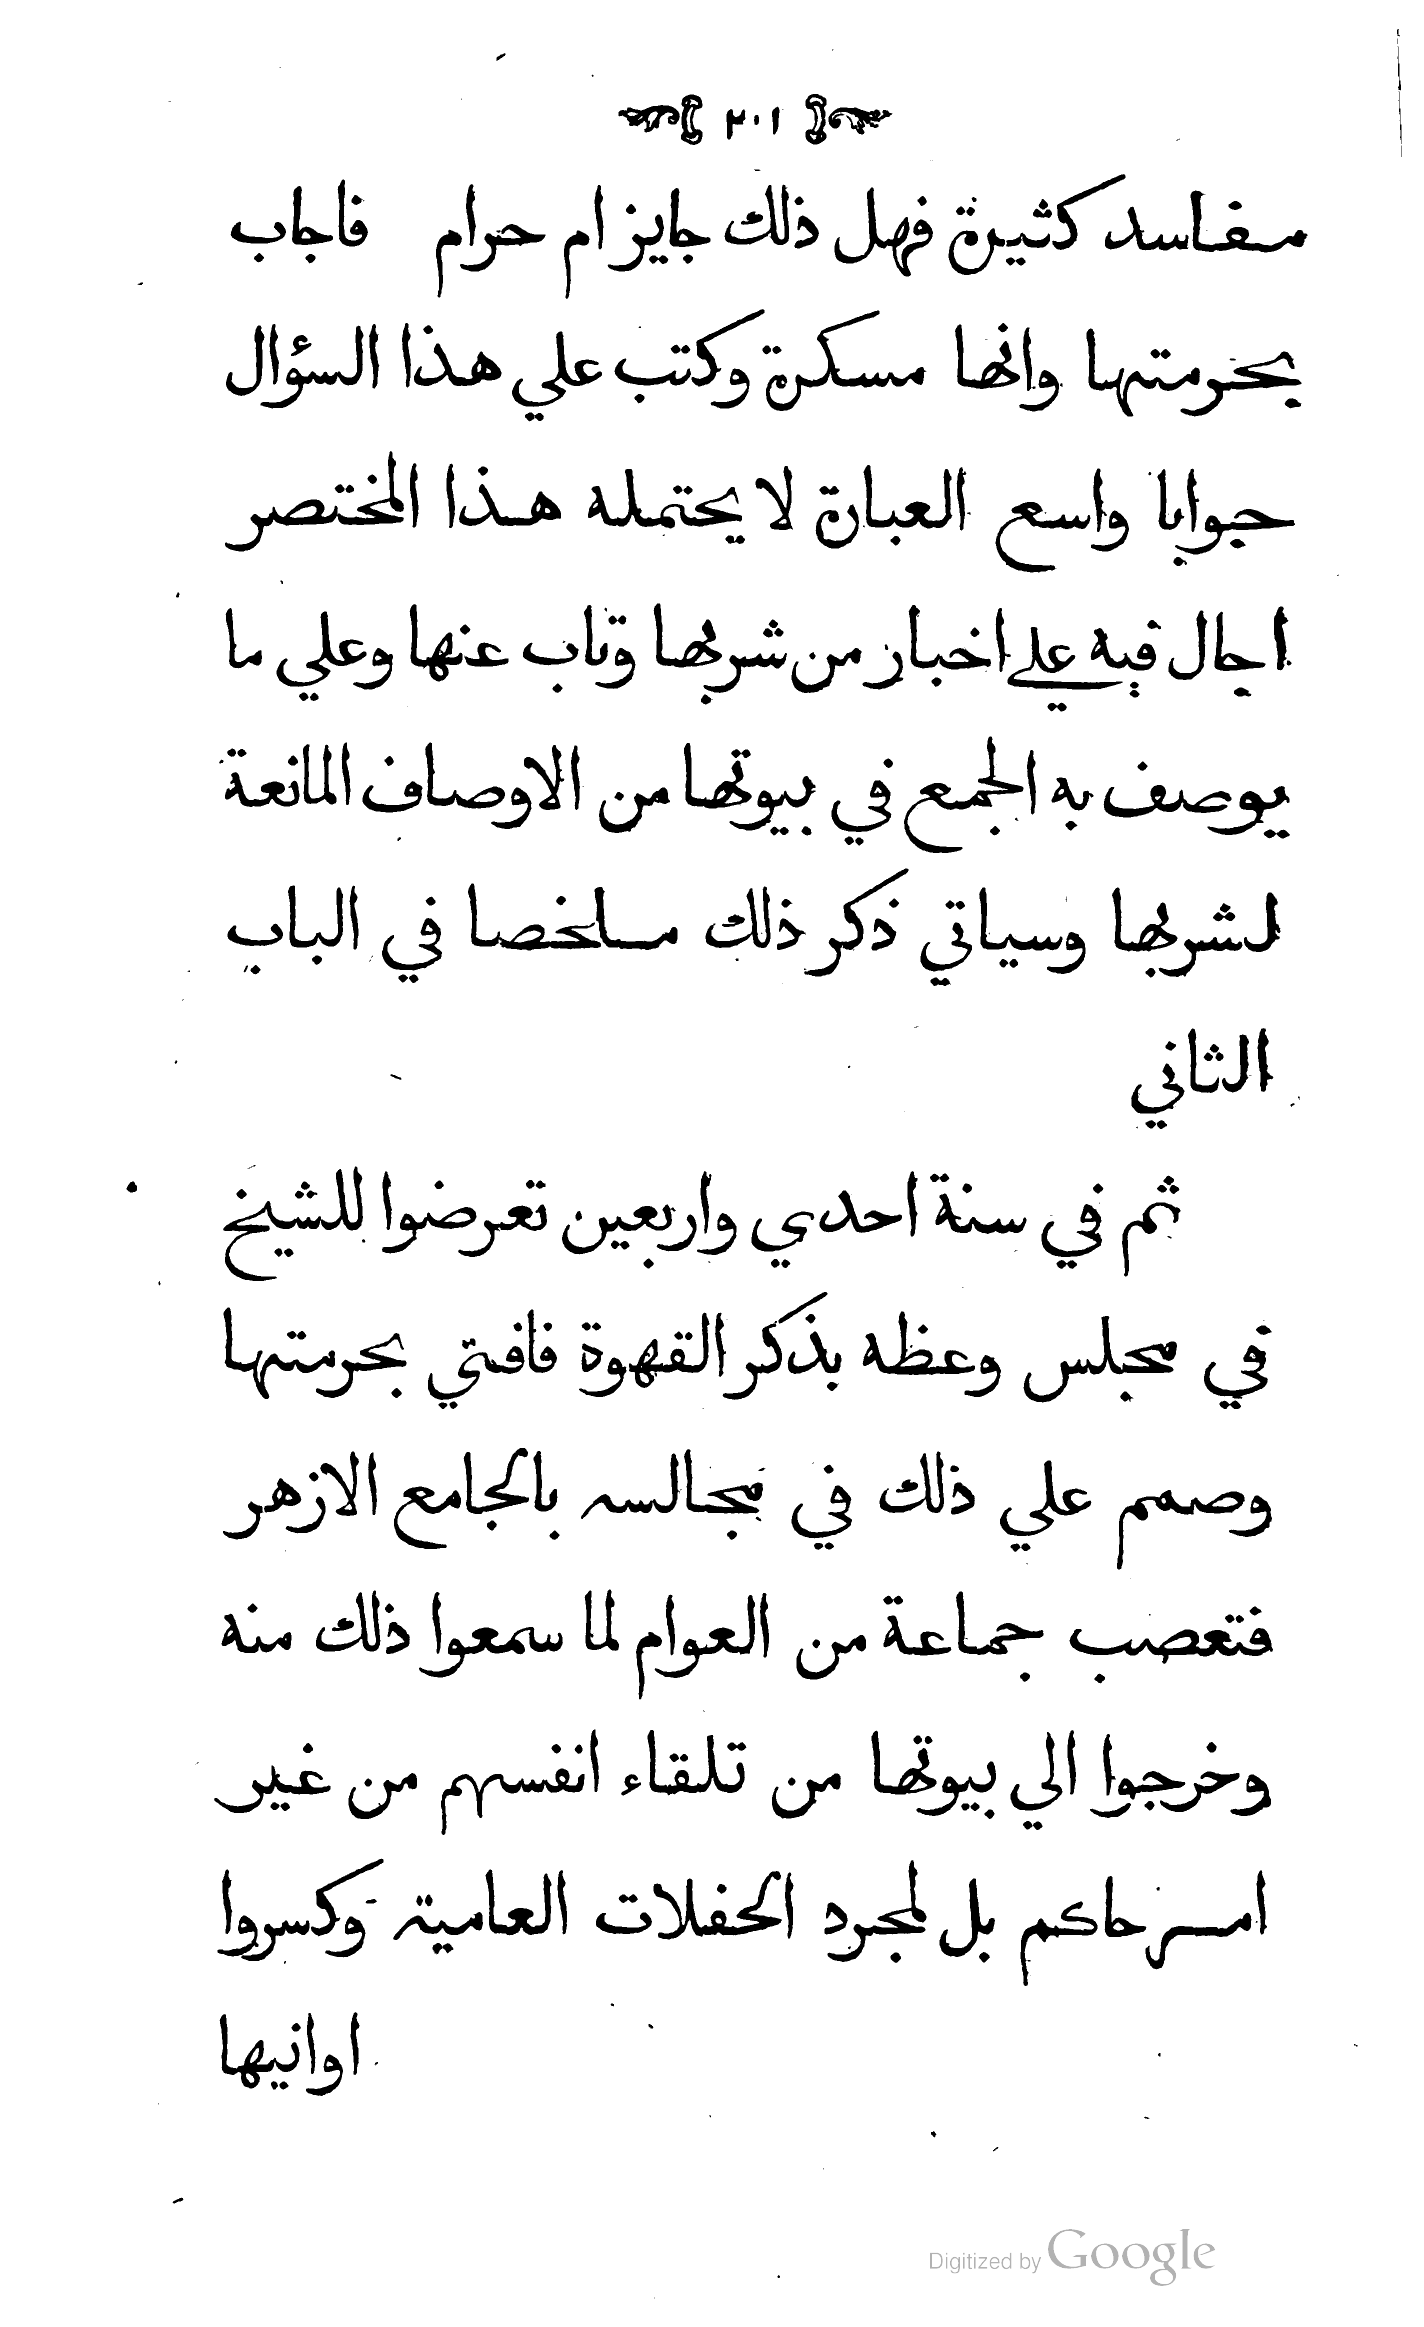 ٢٠١
مفاسد كثيرة فهل ذلك جايز ام حرام فاجاب
بحرمتها وانها مسكرة وكتب علي هذا السؤال
جوابا واسع العبارة لا يحتمله هذا المختصر
اجال فيه علي اخبار من شربها وتاب عنها وعلي ما
يوصف به الجمع في بيوتها من الاوصاف المانعة
لشربها وسياتي ذكر ذلك ملخصا في الباب
الثاني
ثم في سنة احدي واربعين تعرضوا للشيخ
في مجلس وعظه بذكر القهوة فافتي بحرمتها
وصمم علي ذلك في مجالسه بالجامع الازهر
فتعصب جماعة من العوام لما سمعوا ذلك منه
وخرجوا الي بيوتها من تلقاء انفسهم من غير
امر حاكم بل لمجرد الحفلات العامية وكسروا
اوانيها
Digitized by Google